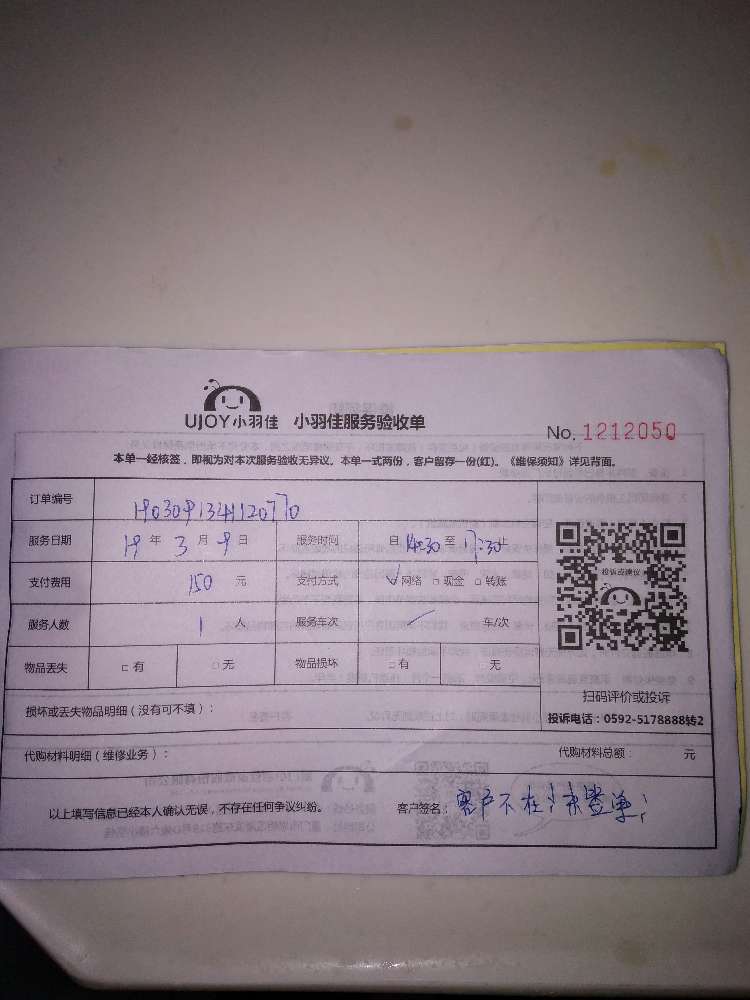 UJOY小羽佳 小羽佳服务验收单
No. 1212050
本单一经核签，即视为对本次服务验收无异议。本单一式两份，客户留存一份(红)。《维保须知》详见背面。
订单编号 1903091341120770
服务日期 19 年 3 月 9 日 服务时间 自 14:30 至 17:30 止
支付费用 150 元 支付方式 √网络 □现金 □转账
投诉或建议
服务人数 1 人 服务车次 / 车/次
物品丢失 □有 □无 物品损坏 □有 □无
扫码评价或投诉
损坏或丢失物品明细（没有可不填）：
投诉电话：0592-5178888转2
代购材料明细（维修业务）： 代购材料总额： 元
以上填写信息已经本人确认无误，不存在任何争议纠纷。 客户签名： 客户不在，未签单；